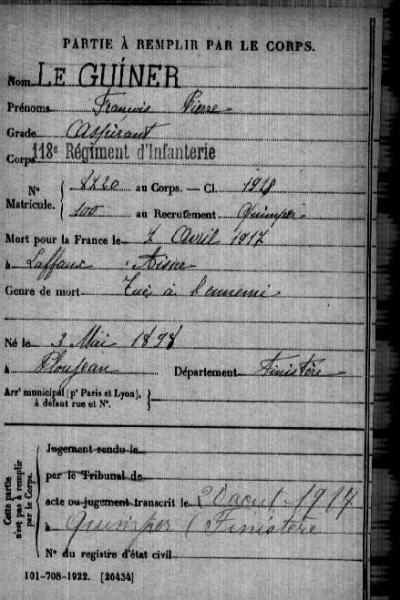 PARTIE À REMPLIR PAR LE CORPS.
Nom LE GUÍNER
Prénoms François Pierre
Grade Aspirant
Corps 118e Régiment d'Infanterie
N° Matricule. 8220 au Corps. — Cl. 1918
100 au Recrutement Quimper
Mort pour la France le 7 Avril 1917
à Laffaux Aisne
Genre de mort Tué à l'ennemi
Né le 3 Mai 1898
à Ploujean Département Finistère
Arr' municipal (p' Paris et Lyon),
à défaut rue et N°.
Cette partie n'est pas à remplir par le Corps.
Jugement rendu le
par le Tribunal de
acte ou jugement transcrit le 20 aout 1917
à Quimper (Finistère
N° du registre d'état civil
101-708-1922. [26434]